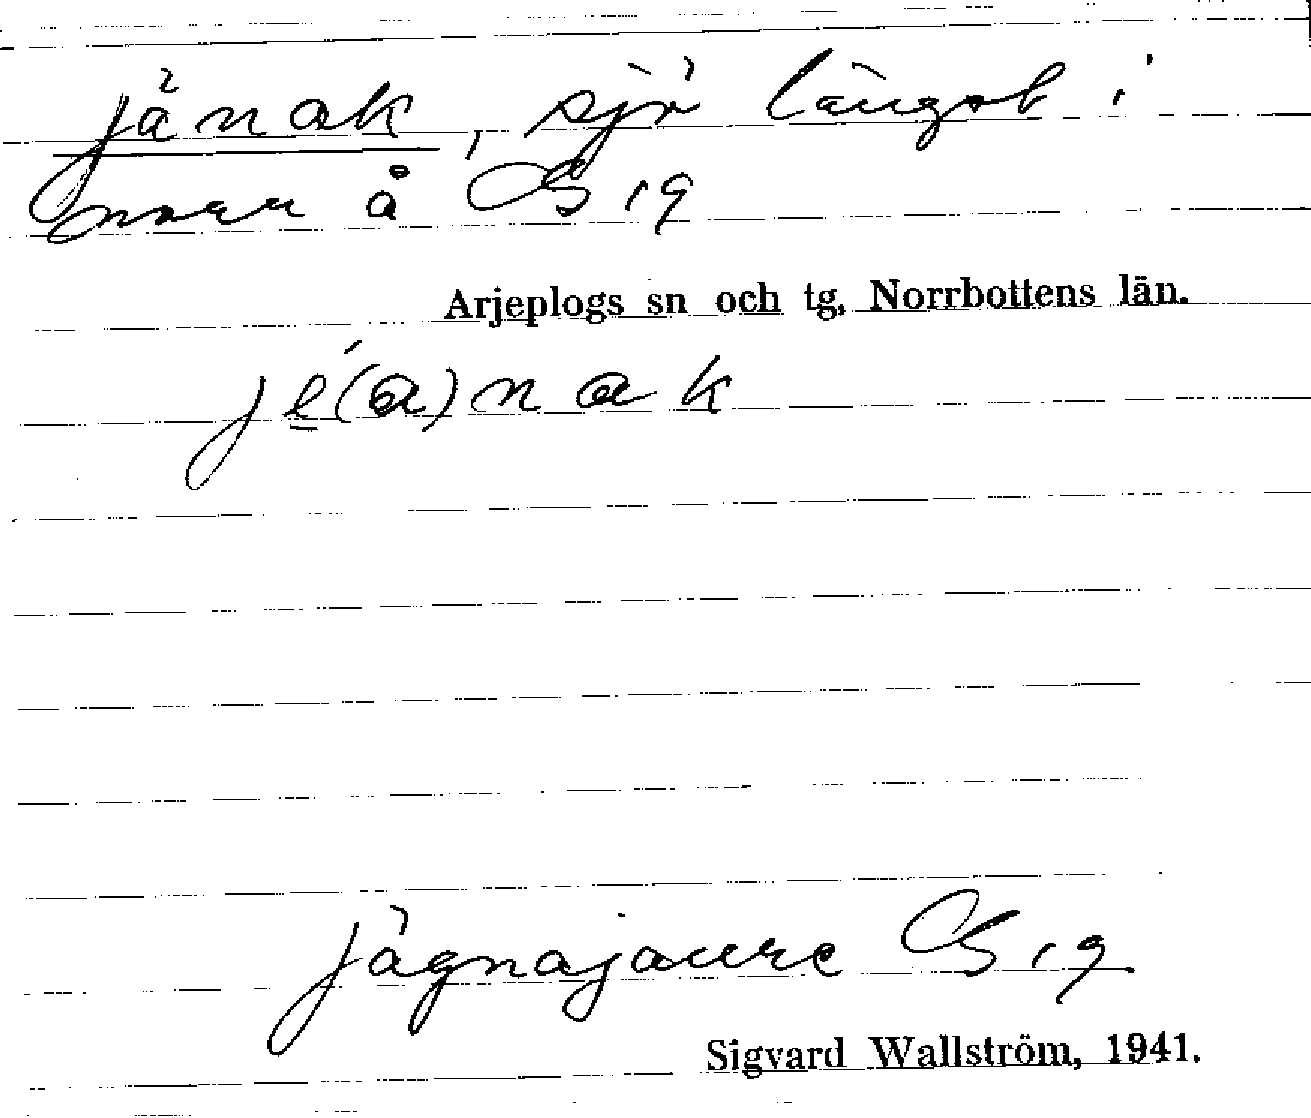 jänak, sjö längst i
norr å G 19
Arjeplogs sn och tg, Norrbottens län.
jé(a)nak
jägnajaure G 19
Sigvard Wallström, 1941.